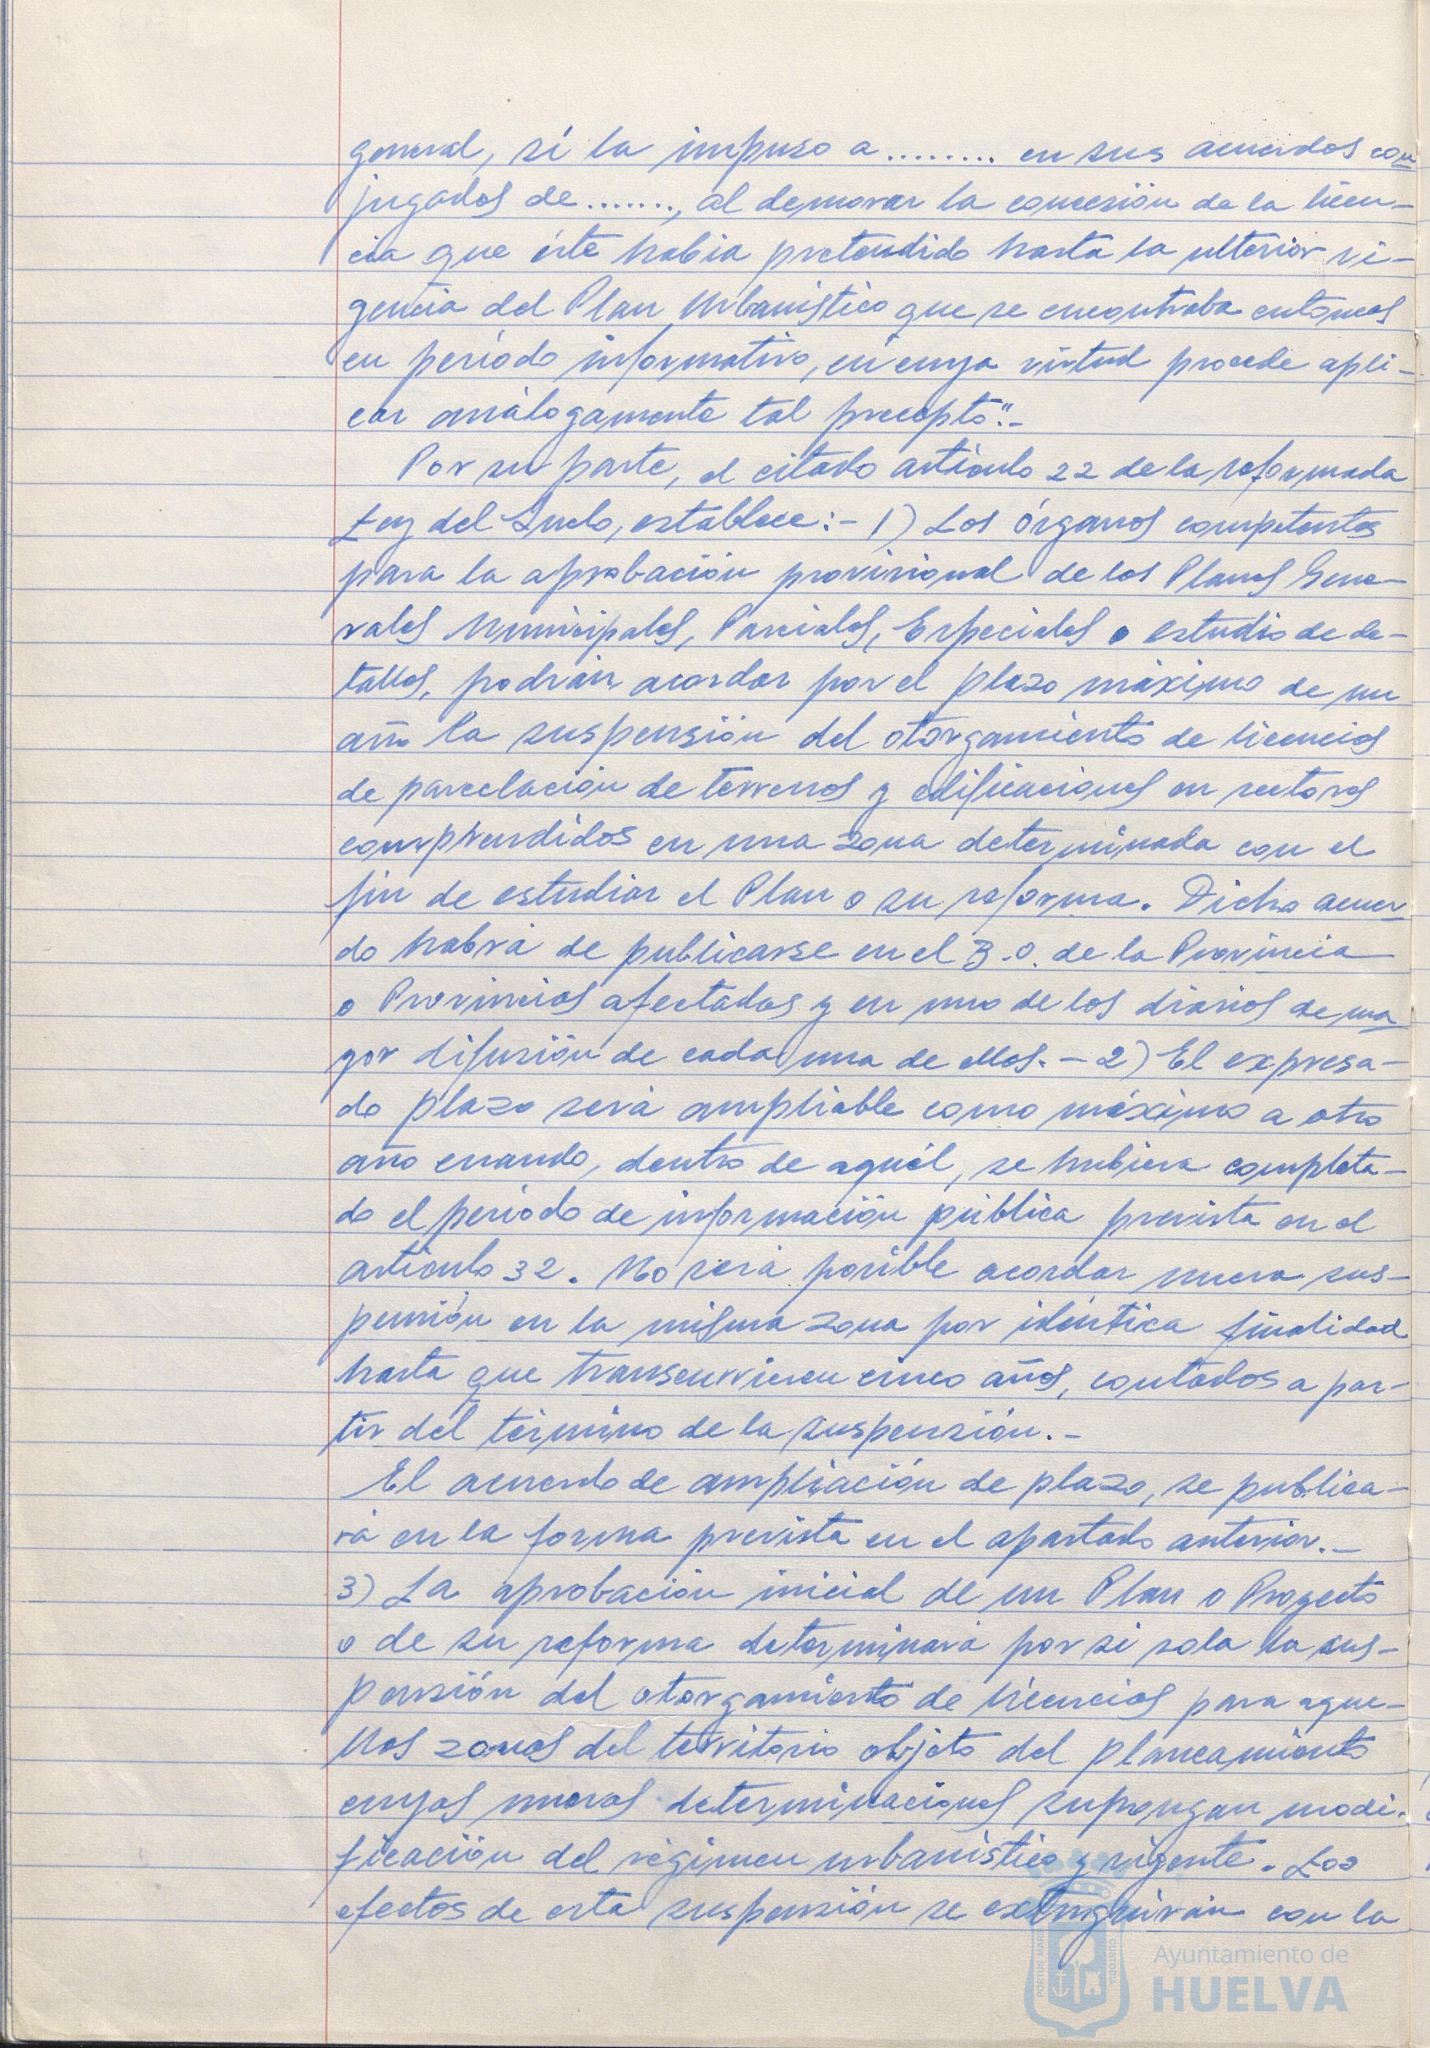 general, sí la impuso a ........ en sus acuerdos con
jugados de ......., al demorar la concesión de la licen-
cia que éste habia pretendido hasta la ulterior vi-
gencia del Plan Urbanistico que se encontraba entonces
en período informativo, en cuya virtud procede apli-
car análogamente tal precepto".-
Por su parte, el citado artículo 22 de la reformada
Ley del Suelo, establece:- 1) Los órganos competentes
para la aprobación provisional de los Planes Gene-
rales Municipales, Parciales, Especiales o estudio de de-
talles, podrán acordar por el plazo máximo de un
año la suspensión del otorgamiento de licencias
de parcelación de terrenos y edificaciones en sectores
comprendidos en una zona determinada con el
fin de estudiar el Plan o su reforma. Dicho acuer
do habrá de publicarse en el B.O. de la Provincia
o Provincias afectadas y en uno de los diarios de ma
yor difusión de cada una de ellas. - 2) El expresa-
do plazo será ampliable como máximo a otro
año cuando, dentro de aquél, se hubiera completa-
do el período de información pública prevista en el
artículo 32. No será posible acordar nueva sus-
pensión en la misma zona por idéntica finalidad
hasta que transcurrieren cinco años, contados a par-
tir del término de la suspensión.-
El acuerdo de ampliación de plazo, se publica-
rá en la forma prevista en el apartado anterior.-
3) La aprobación inicial de un Plan o Proyecto
o de su reforma determinará por si sola la sus-
pensión del otorgamiento de licencias para aque-
llas zonas del territorio objeto del planeamiento
cuyas nuevas determinaciones supongan modi-
ficación del régimen urbanístico y vigente. Los
efectos de esta suspensión se extinguirán con la
PORTUS MARIS
CUSTODIA
Ayuntamiento de
HUELVA